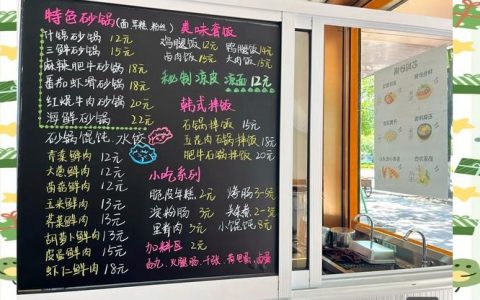 特色砂锅(面.年糕.粉丝)
什锦砂锅 12元
三鲜砂锅 15元
麻辣肥牛砂锅 18元
番茄虾滑砂锅 18元
红烧牛肉砂锅 20元
海鲜砂锅 22元
砂锅馄饨 水饺
青菜鲜肉 12元
大葱鲜肉 12元
香菇鲜肉 12元
玉米鲜肉 13元
芹菜鲜肉 13元
胡萝卜鲜肉 13元
鲜肉 15元
虾仁鲜肉 18元
美味套饭
鸡腿饭 12元 鸭腿饭 14元
卤肉饭 15元 大肉饭 15元
秘制凉皮 凉面 12元
韩式拌饭
石锅拌饭 15元
五花肉石锅拌饭 18元
肥牛石锅拌饭 20元
小吃系列
脆皮年糕 2元 烤肠 3-5元
淀粉肠 3元 2-5元
里脊肉 3元 小馄饨 8元
加料区 2元
火腿肠.千张.荷包蛋